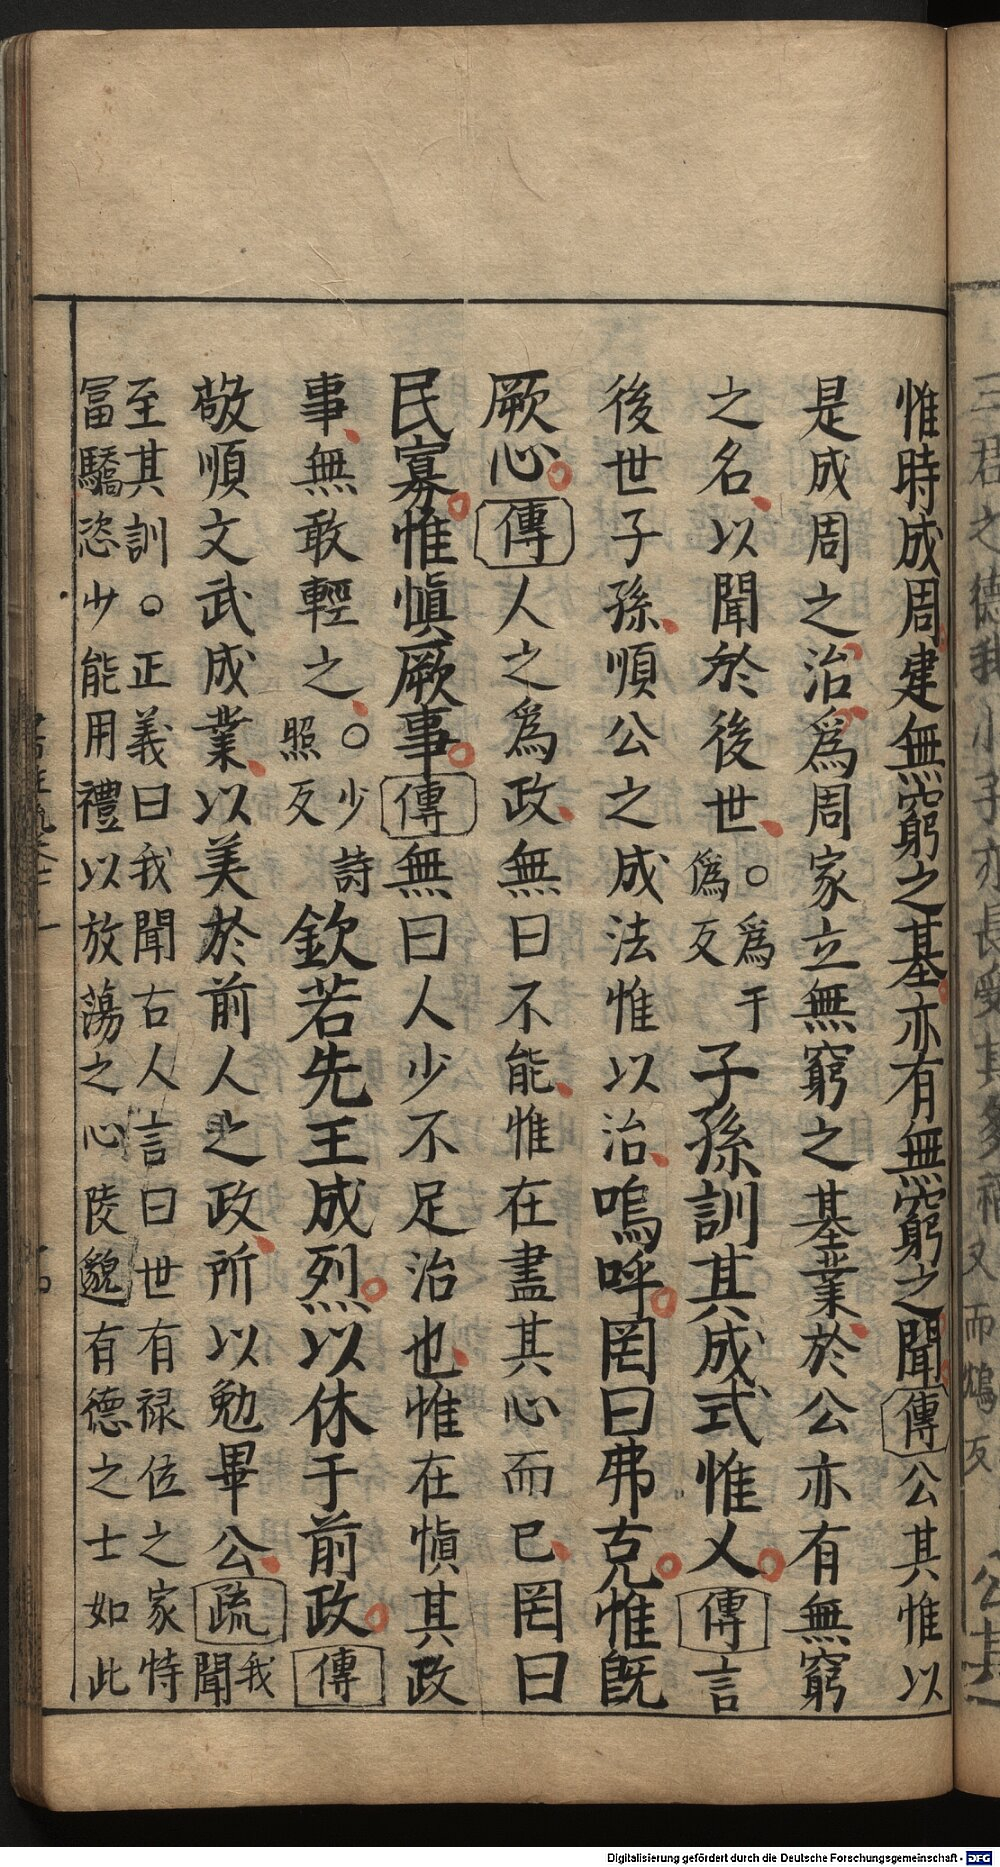 惟時成周建無窮之基亦有無窮之聞傳公其惟以
是成周之治爲周家立無窮之基業於公亦有無窮
之名以聞於後世○爲于僞反子孫訓其成式惟乂傳言
後世子孫順公之成法惟以治嗚呼罔曰弗克惟既
厥心傳人之爲政無曰不能惟在盡其心而已罔曰
民寡惟愼厥事傳無曰人少不足治也惟在愼其政
事無敢輕之○少詩照反欽若先王成烈以休于前政傳
敬順文武成業以美於前人之政所以勉畢公疏我聞
至其訓○正義曰我聞古人言曰世有禄位之家恃
冨驕恣少能用禮以放蕩之心陵邈有德之士如此
Digitalisierung gefördert durch die Deutsche Forschungsgemeinschaft - DFG